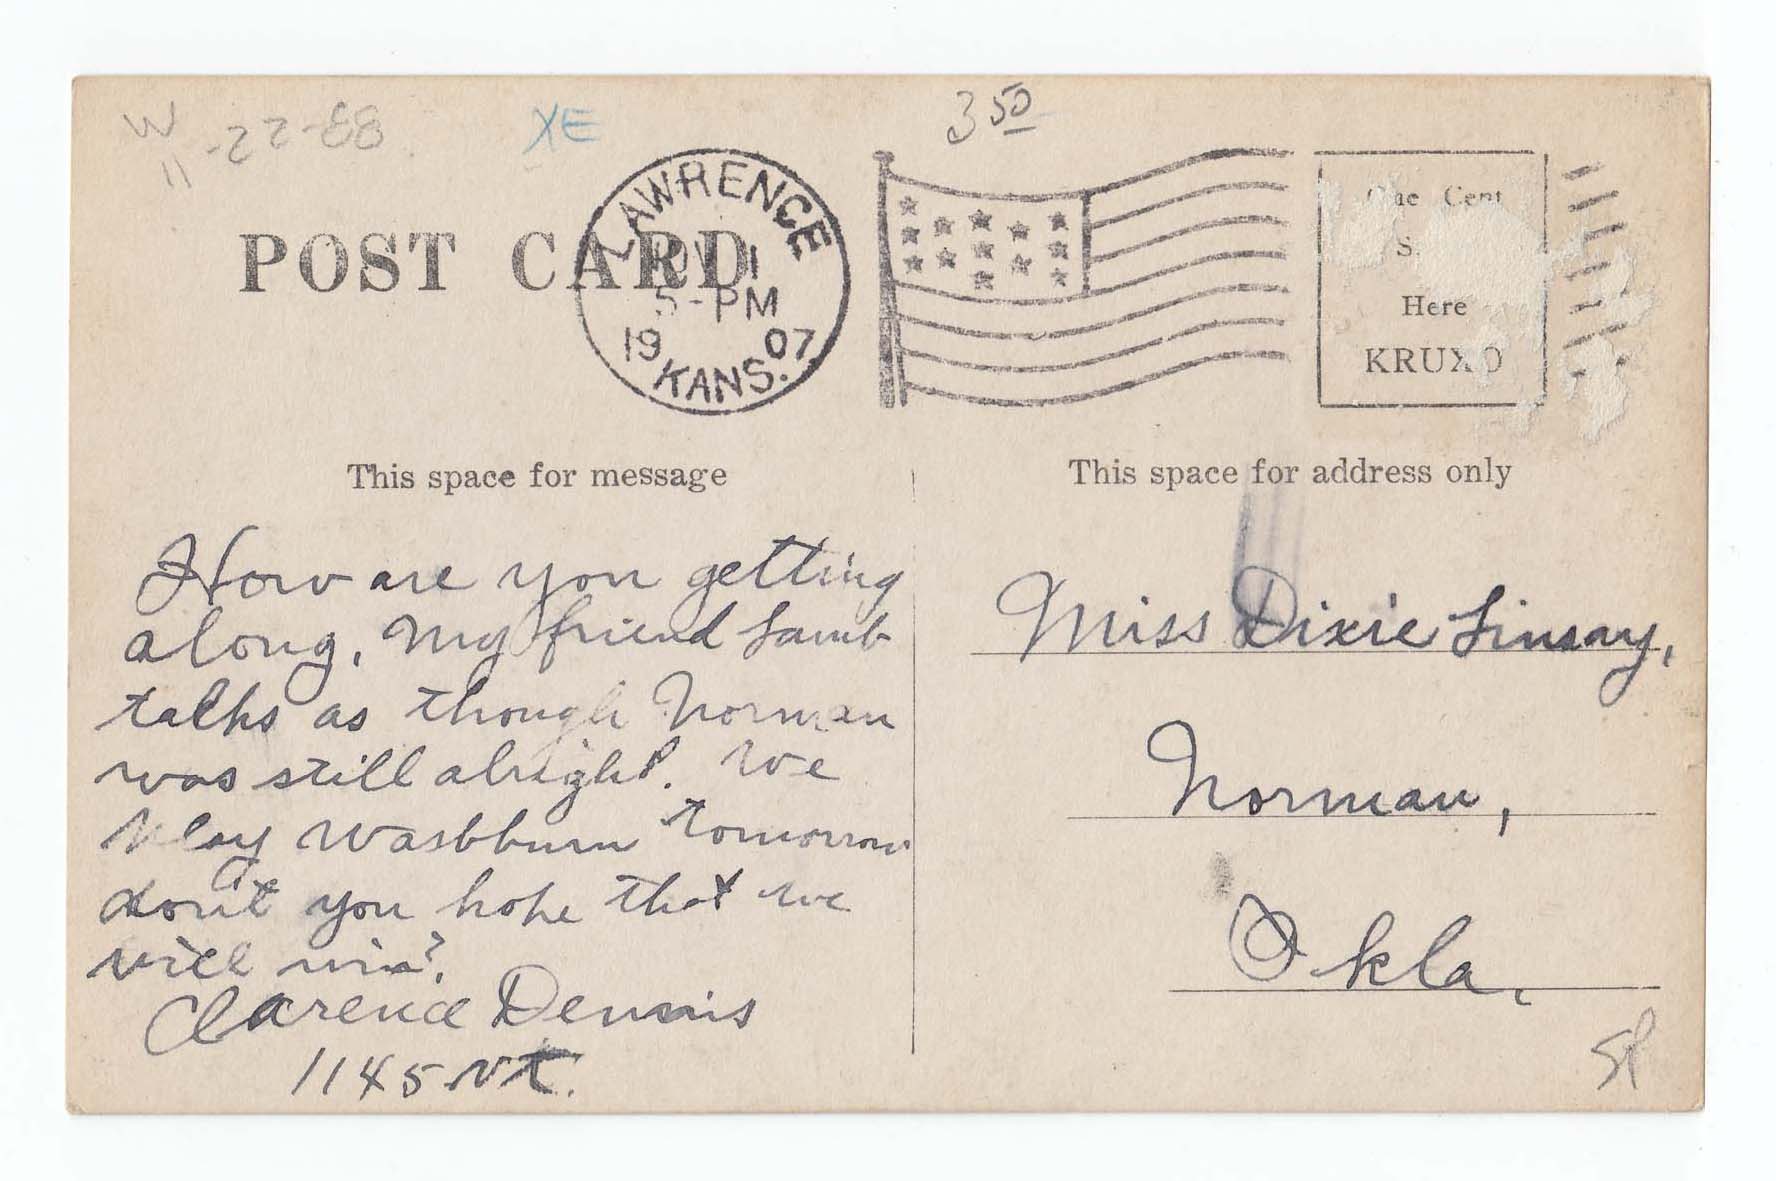 W
11-22-88
XE
3 50
POST CARD
LAWRENCE
NOV 1
5-PM
1907
KANS.
One Cent
Here
KRUXO
This space for message
This space for address only
How are you getting
along, My friend Lamb
talks as though Norman
was still alright. We
Play Washburn tomorrow
dont you hope that we
will win?
Clarence Dennis
1145 Vt.
Miss Dixie Linsay,
Norman,
Okla.